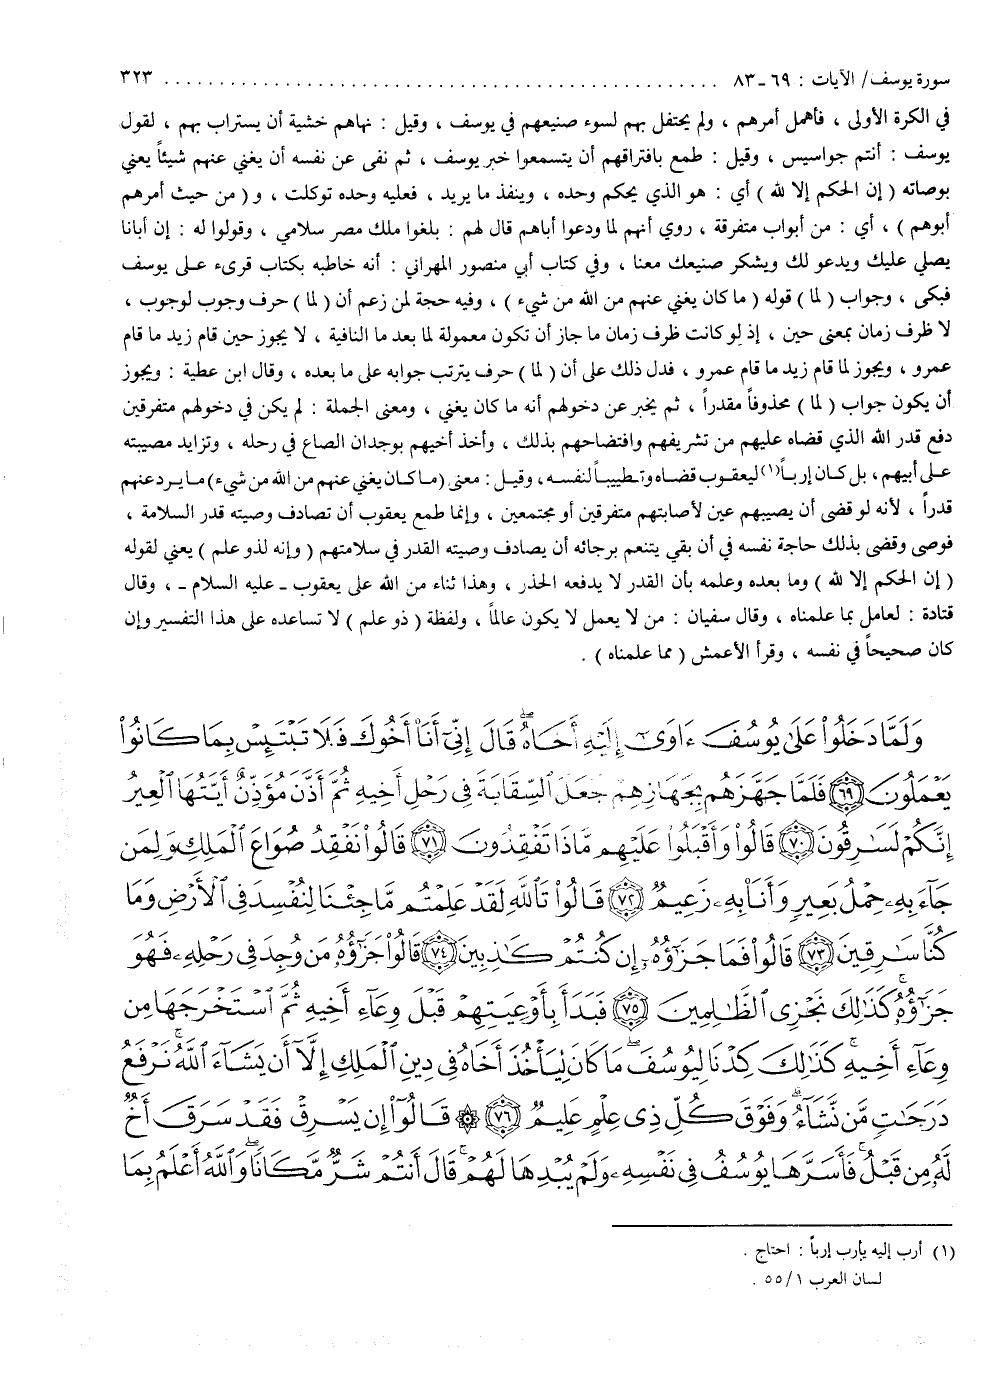 سورة يوسف/ الآيات : ٦٩ـ٨٣ . . . . . . . . . . . . . . . . . . . . . . . . . . . . . . . . . . . . . . . . . . . . . . . . . . . ٣٢٣
في الكرة الأولى ، فأهمل أمرهم ، ولم يحتفل بهم لسوء صنيعهم في يوسف ، وقيل : نهاهم خشية أن يستراب بهم ، لقول
يوسف : أنتم جواسيس ، وقيل : طمع بافتراقهم أن يتسمعوا خبر يوسف ، ثم نفى عن نفسه أن يغني عنهم شيئاً يعني
بوصاته ( إن الحكم إلا لله ) أي : هو الذي يحكم وحده ، وينفذ ما يريد ، فعليه وحده توكلت ، و( من حيث أمرهم
أبوهم ) ، أي : من أبواب متفرقة ، روي أنهم لما ودعوا أباهم قال لهم : بلغوا ملك مصر سلامي ، وقولوا له : إن أبانا
يصلي عليك ويدعو لك ويشكر صنيعك معنا ، وفي كتاب أبي منصور المهراني : أنه خاطبه بكتاب قرىء على يوسف
فبكى ، وجواب ( لما ) قوله ( ما كان يغني عنهم من الله من شيء ) ، وفيه حجة لمن زعم أن ( لما ) حرف وجوب لوجوب ،
لا ظرف زمان بمعنى حين ، إذ لو كانت ظرف زمان ما جاز أن تكون معمولة لما بعد ما النافية ، لا يجوز حين قام زيد ما قام
عمرو ، ويجوز لما قام زيد ما قام عمرو ، فدل ذلك على أن ( لما ) حرف يترتب جوابه على ما بعده ، وقال ابن عطية : ويجوز
أن يكون جواب ( لما ) محذوفاً مقدراً ، ثم يخبر عن دخولهم أنه ما كان يغني ، ومعنى الجملة : لم يكن في دخولهم متفرقين
دفع قدر الله الذي قضاه عليهم من تشريفهم وافتضاحهم بذلك ، وأخذ أخيهم بوجدان الصاع في رحله ، وتزايد مصيبته
على أبيهم ، بل كان إرباً(١) ليعقوب قضاه وتطييباً لنفسه ، وقيل : معنى (ما كان يغني عنهم من الله من شيء) ما يرد عنهم
قدراً ، لأنه لو قضى أن يصيبهم عين لأصابتهم متفرقين أو مجتمعين ، وإنما طمع يعقوب أن تصادف وصيته قدر السلامة ،
فوصى وقضى بذلك حاجة نفسه في أن بقي يتنعم برجائه أن يصادف وصيته القدر في سلامتهم ( وإنه لذو علم ) يعني لقوله
( إن الحكم إلا لله ) وما بعده وعلمه بأن القدر لا يدفعه الحذر ، وهذا ثناء من الله على يعقوب ـ عليه السلام ـ ، وقال
قتادة : لعامل بما علمناه ، وقال سفيان : من لا يعمل لا يكون عالماً ، ولفظة ( ذو علم ) لا تساعده على هذا التفسير وإن
كان صحيحاً في نفسه ، وقرأ الأعمش ( مما علمناه ) .
وَلَمَّا دَخَلُوا۟ عَلَىٰ يُوسُفَ ءَاوَىٰٓ إِلَيْهِ أَخَاهُ ۖ قَالَ إِنِّىٓ أَنَا۠ أَخُوكَ فَلَا تَبْتَئِسْ بِمَا كَانُوا۟
يَعْمَلُونَ ﴿٦٩﴾ فَلَمَّا جَهَّزَهُم بِجَهَازِهِمْ جَعَلَ ٱلسِّقَايَةَ فِى رَحْلِ أَخِيهِ ثُمَّ أَذَّنَ مُؤَذِّنٌ أَيَّتُهَا ٱلْعِيرُ
إِنَّكُمْ لَسَٰرِقُونَ ﴿٧٠﴾ قَالُوا۟ وَأَقْبَلُوا۟ عَلَيْهِم مَّاذَا تَفْقِدُونَ ﴿٧١﴾ قَالُوا۟ نَفْقِدُ صُوَاعَ ٱلْمَلِكِ وَلِمَن
جَآءَ بِهِۦ حِمْلُ بَعِيرٍ وَأَنَا۠ بِهِۦ زَعِيمٌ ﴿٧٢﴾ قَالُوا۟ تَٱللَّهِ لَقَدْ عَلِمْتُم مَّا جِئْنَا لِنُفْسِدَ فِى ٱلْأَرْضِ وَمَا
كُنَّا سَٰرِقِينَ ﴿٧٣﴾ قَالُوا۟ فَمَا جَزَٰٓؤُهُۥٓ إِن كُنتُمْ كَٰذِبِينَ ﴿٧٤﴾ قَالُوا۟ جَزَٰٓؤُهُۥ مَن وُجِدَ فِى رَحْلِهِۦ فَهُوَ
جَزَٰٓؤُهُۥ ۚ كَذَٰلِكَ نَجْزِى ٱلظَّٰلِمِينَ ﴿٧٥﴾ فَبَدَأَ بِأَوْعِيَتِهِمْ قَبْلَ وِعَآءِ أَخِيهِ ثُمَّ ٱسْتَخْرَجَهَا مِن
وِعَآءِ أَخِيهِ ۚ كَذَٰلِكَ كِدْنَا لِيُوسُفَ ۖ مَا كَانَ لِيَأْخُذَ أَخَاهُ فِى دِينِ ٱلْمَلِكِ إِلَّآ أَن يَشَآءَ ٱللَّهُ ۚ نَرْفَعُ
دَرَجَٰتٍ مَّن نَّشَآءُ ۗ وَفَوْقَ كُلِّ ذِى عِلْمٍ عَلِيمٌ ﴿٧٦﴾ ۞ قَالُوٓا۟ إِن يَسْرِقْ فَقَدْ سَرَقَ أَخٌ
لَّهُۥ مِن قَبْلُ ۚ فَأَسَرَّهَا يُوسُفُ فِى نَفْسِهِۦ وَلَمْ يُبْدِهَا لَهُمْ ۚ قَالَ أَنتُمْ شَرٌّ مَّكَانًا ۖ وَٱللَّهُ أَعْلَمُ بِمَا
(١) أرب إليه يأرب إرباً : احتاج .
لسان العرب ١/ ٥٥ .